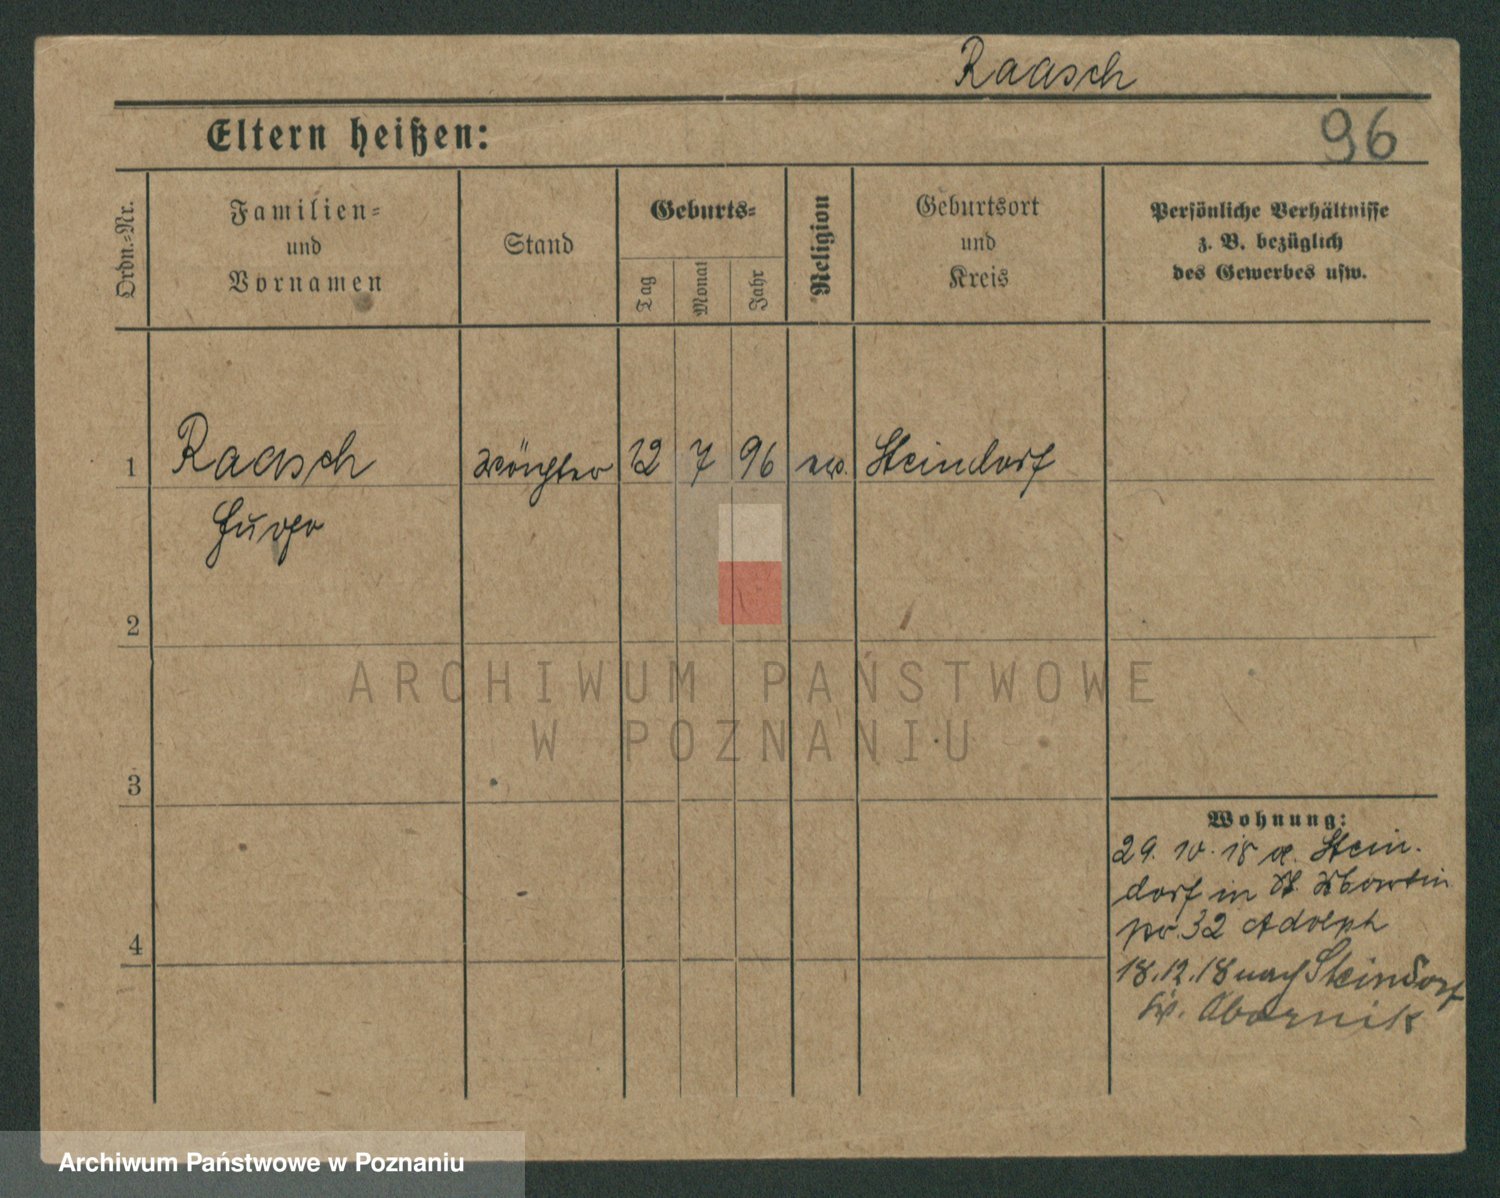 Raasch
Eltern heißen:
96
Ordn.-Nr.
Familien-
und
Vornamen
Stand
Geburts-
Tag
Monat
Jahr
Religion
Geburtsort
und
Kreis
Persönliche Verhältnisse
z. B. bezüglich
des Gewerbes usw.
1 Raasch 12 7 96 ev. Steindorf
Hugo
2
ARCHIWUM PAŃSTWOWE
W POZNANIU
3
Wohnung:
29. 10. 18 a. Stein-
dorf in St. Martin
32 Adolph
4
18.12.18 nach Steindorf
Kr. Obornik
Archiwum Państwowe w Poznaniu